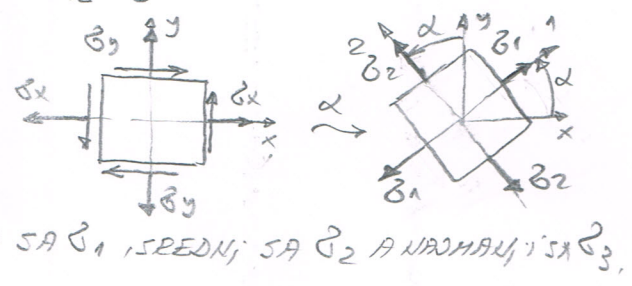 σy y
σx σx x
σy
α
2 σ2 α y σ1 1 α
x
σ1 σ2
SA σ1, SREDNJI SA σ2 A NAJMANJI SA σ3.